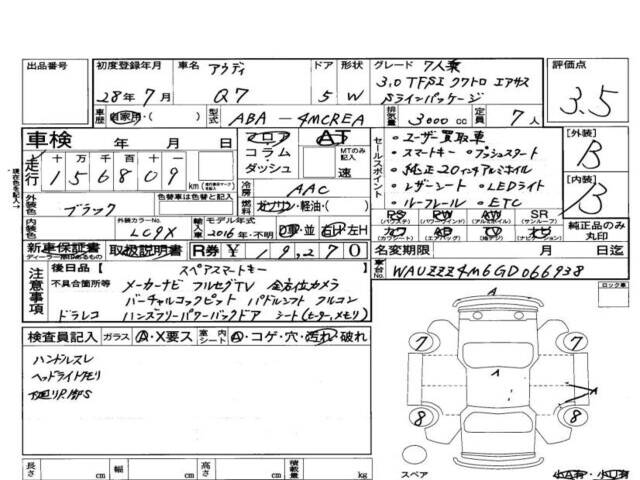 出品番号 初度登録年月 車名 アウディ ドア 形状 グレード 7人乗 評価点
28年7月 Q7 5 W 3.0 TFSI クワトロ エアサス
Sラインパッケージ 3.5
車歴 自家用・( ) 型式 ABA-4MCREA 排気量 3000cc 定員 7人
車検 年 月 日 フロア AT セールスポイント ・ユーザー買取車 [外装]
走行 十万千百十 コラム MTのみ記入 ・スマートキー・プッシュスタート B
156809 km ダッシュ 速 ・純正20インチアルミホイル
冷房 AAC ・レザーシート・LEDライト [内装]
外装色 ブラック 色替車は色替と記入 燃料 ガソリン・軽油・( ) ・ルーフレール・ETC B
内装色 外装カラーNo. LC9X 輸入車 モデル年式 2016年・不明 D車・並 右H・左H PS PW AW SR 純正品のみ丸印
(パワステ) (パワーウインド) (アルミホイル) (サンルーフ)
カワ エアB TV ナビ
(カワシート) (エアバッグ) (純TV) (純ナビ)
新車保証書 取扱説明書 R券 ¥19,270 名変期限 月 日迄
ディーラー印があるもの
注意事項 後日品( スペアスマートキー ) 車台No. WAUZZZ4M6GD066938
不具合箇所等 メーカーナビ フルセグTV 全方位カメラ ロック車
バーチャルコックピット パドルシフト フルコン
ドラレコ ハンズフリーパワーバックドア シート(ヒーター,メモリ)
検査員記入 ガラス A・X要ス 室内シート A・コゲ・穴・汚れ・破れ
ハンドルスレ
ヘッドライトクモリ
A
7 7
A
A
8 8
スペア
長さ cm 幅 cm 高さ cm 積載量 kg